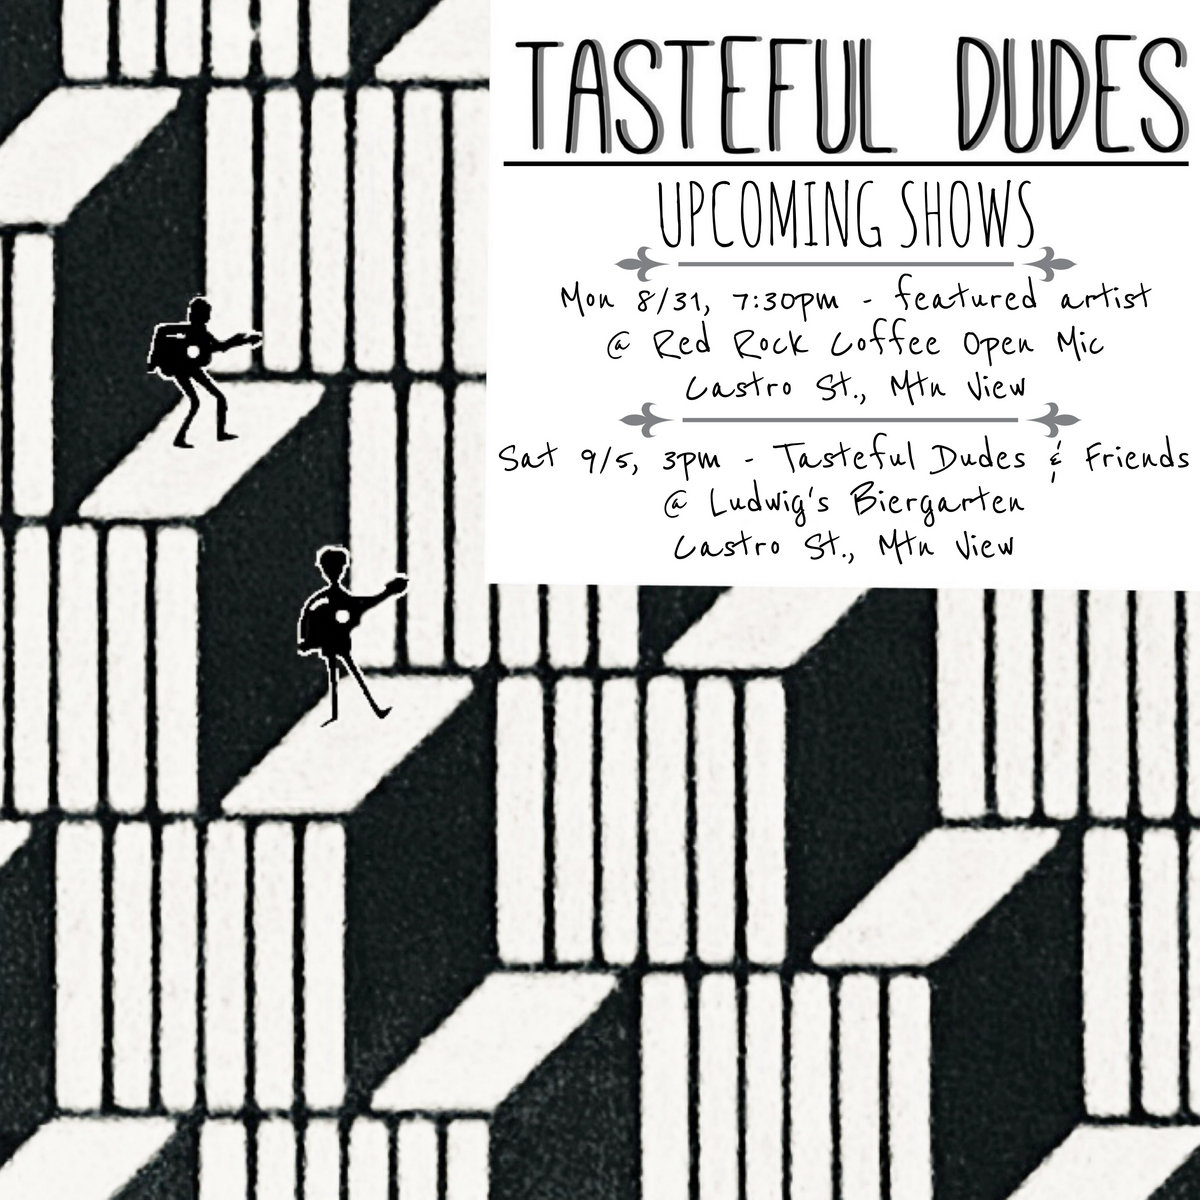 TASTEFUL DUDES
UPCOMING SHOWS
Mon 8/31, 7:30pm - featured artist
@ Red Rock Coffee Open Mic
Castro St., Mtn View
Sat 9/5, 3pm - Tasteful Dudes & Friends
@ Ludwig's Biergarten
Castro St., Mtn View